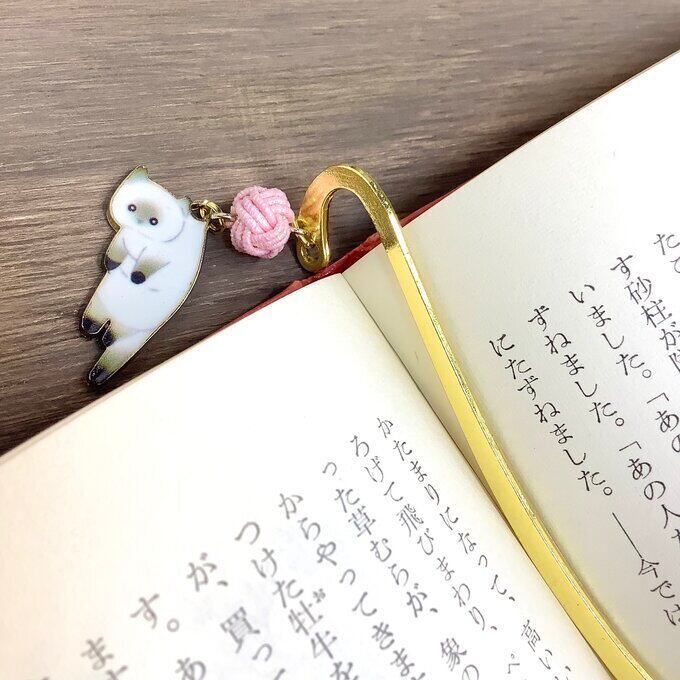 す砂柱が
いました。「あの
ずねました。「あの人
にたずねました。――今では
かたまりになって、高い
ろげて飛びまわり、ペ
った草むらが、象の
からやってきま
つけた牡おを
牛を
が、買っ
す。あ
ます